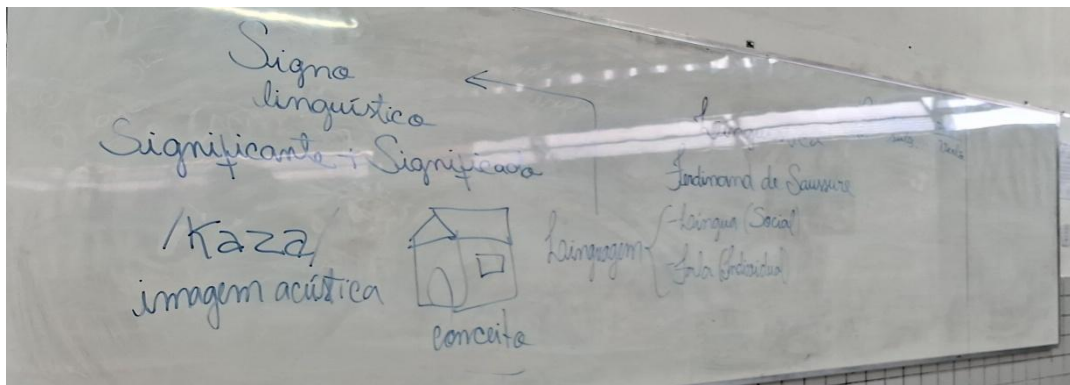 Signo
linguístico
Significante + Significado
/Kaza/
imagem acústica
conceito
Ferdinand de Saussure
Linguagem
- Língua (Social)
- Fala (Individual)